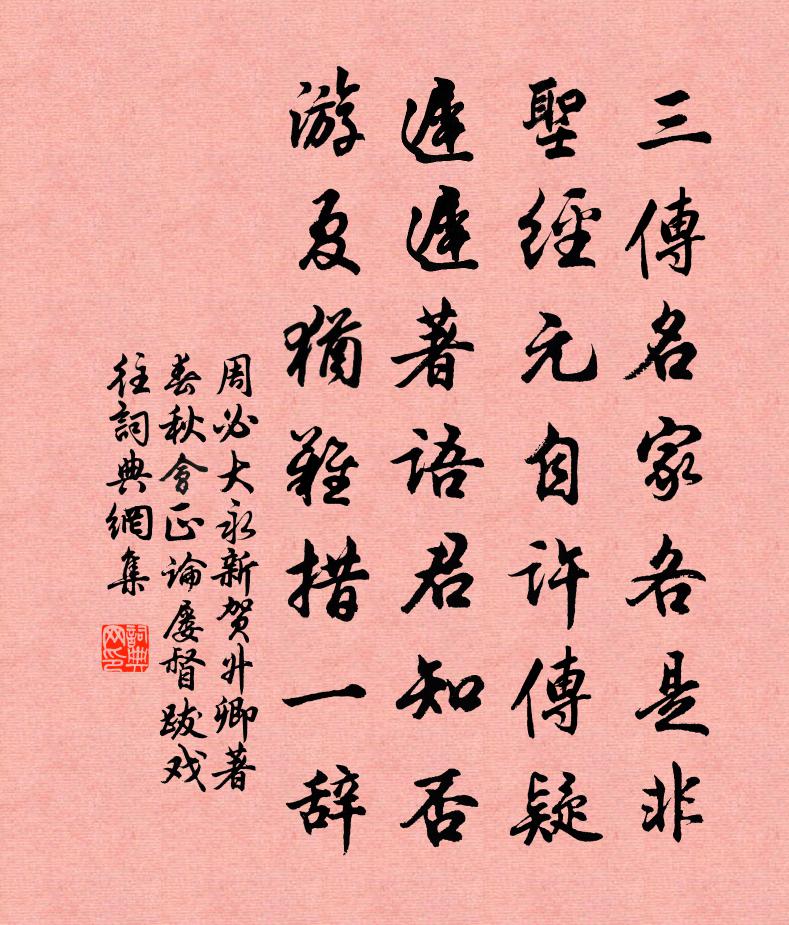 三傳名家各是非
聖經元自許傳疑
遲遲著語君知否
游夏猶難措一辞
周必大永新贺升卿著
春秋會正论屡督跋戏
往詞典網集
詞典网印